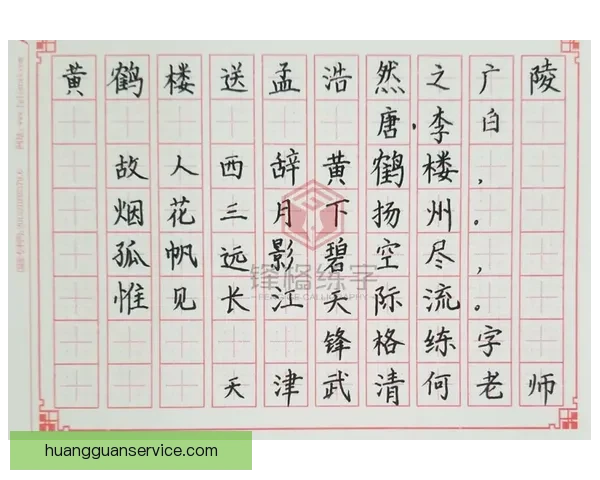 黄鹤楼送孟浩然之广陵
唐·李白
故人西辞黄鹤楼，
烟花三月下扬州。
孤帆远影碧空尽，
惟见长江天际流。
锋格练字
天津武清何老师
锋格练字
huangguanservice.com